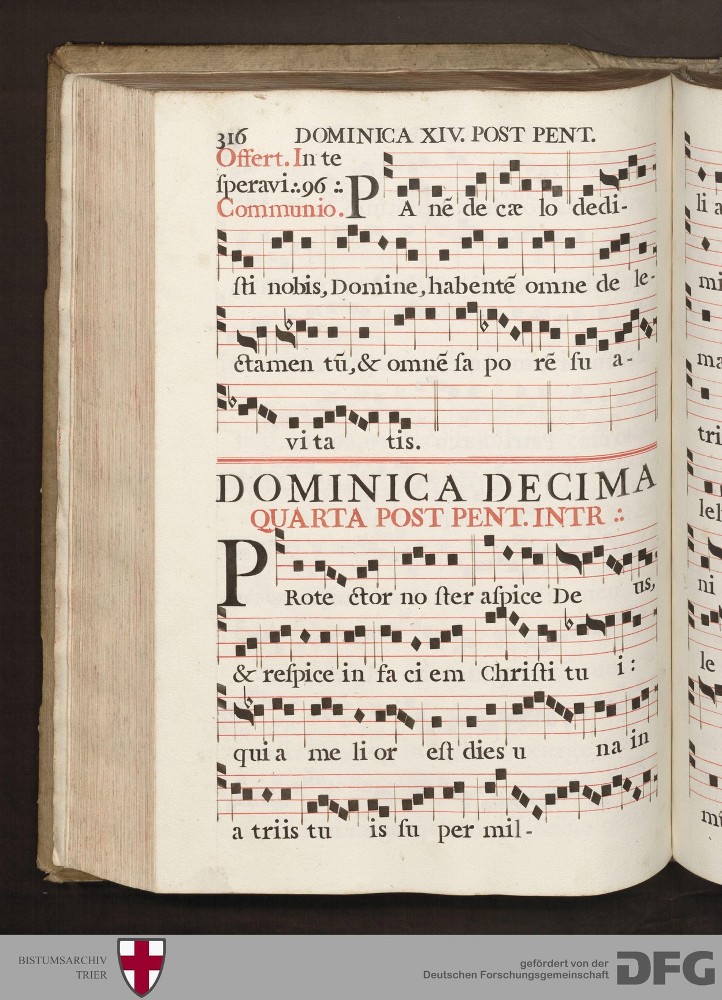 316 DOMINICA XIV. POST PENT.
Offert. In te
ſperavi.:96 :.
Communio. PA nē de cæ lo dedi-
ſti nobis, Domine, habentē omne de le-
ctamen tū, & omnē ſa po rē ſu a-
vi ta tis.
DOMINICA DECIMA
QUARTA POST PENT. INTR :.
PRote ctor no ſter aſpice De us,
& reſpice in fa ci em Chriſti tu i:
qui a me li or eſt dies u na in
a triis tu is ſu per mil-
li a
mi
ma
tri
leh
ni
le
BISTUMSARCHIV
TRIER
gefördert von der
Deutschen Forschungsgemeinschaft
DFG